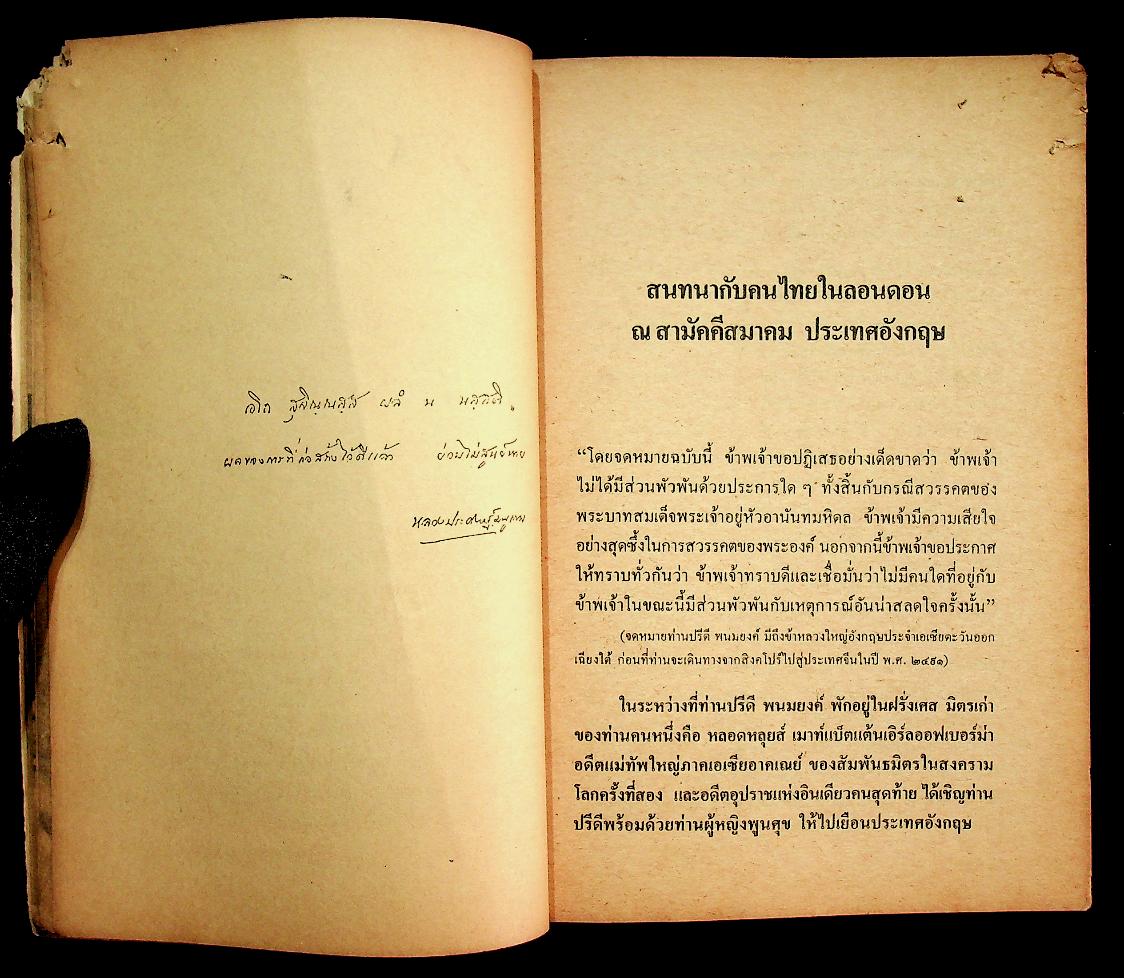 อิต สุจิณฺณสฺส ผลํ น นสฺสติ.
ผลของการที่ก่อสร้างไว้ดีแล้ว ย่อมไม่สูญหาย
หลวงประดิษฐ์มนูธรรม
สนทนากับคนไทยในลอนดอน
ณ สามัคคีสมาคม ประเทศอังกฤษ
“โดยจดหมายฉบับนี้ ข้าพเจ้าขอปฏิเสธอย่างเด็ดขาดว่า ข้าพเจ้า
ไม่ได้มีส่วนพัวพันด้วยประการใด ๆ ทั้งสิ้นกับกรณีสวรรคตของ
พระบาทสมเด็จพระเจ้าอยู่หัวอานันทมหิดล ข้าพเจ้ามีความเสียใจ
อย่างสุดซึ้งในการสวรรคตของพระองค์ นอกจากนี้ข้าพเจ้าขอประกาศ
ให้ทราบทั่วกันว่า ข้าพเจ้าทราบดีและเชื่อมั่นว่าไม่มีคนใดที่อยู่กับ
ข้าพเจ้าในขณะนี้มีส่วนพัวพันกับเหตุการณ์อันน่าสลดใจครั้งนั้น”
(จดหมายท่านปรีดี พนมยงค์ มีถึงข้าหลวงใหญ่อังกฤษประจำเอเซียตะวันออก
เฉียงใต้ ก่อนที่ท่านจะเดินทางจากสิงคโปร์ไปสู่ประเทศจีนในปี พ.ศ. ๒๔๙๑)
ในระหว่างที่ท่านปรีดี พนมยงค์ พักอยู่ในฝรั่งเศส มิตรเก่า
ของท่านคนหนึ่งคือ หลอดหลุยส์ เมาท์แบ็ตแต้นเอิร์ลออฟเบอร์ม่า
อดีตแม่ทัพใหญ่ภาคเอเซียอาคเณย์ ของสัมพันธมิตรในสงคราม
โลกครั้งที่สอง และอดีตอุปราชแห่งอินเดียวคนสุดท้าย ได้เชิญท่าน
ปรีดีพร้อมด้วยท่านผู้หญิงพูนศุข ให้ไปเยือนประเทศอังกฤษ